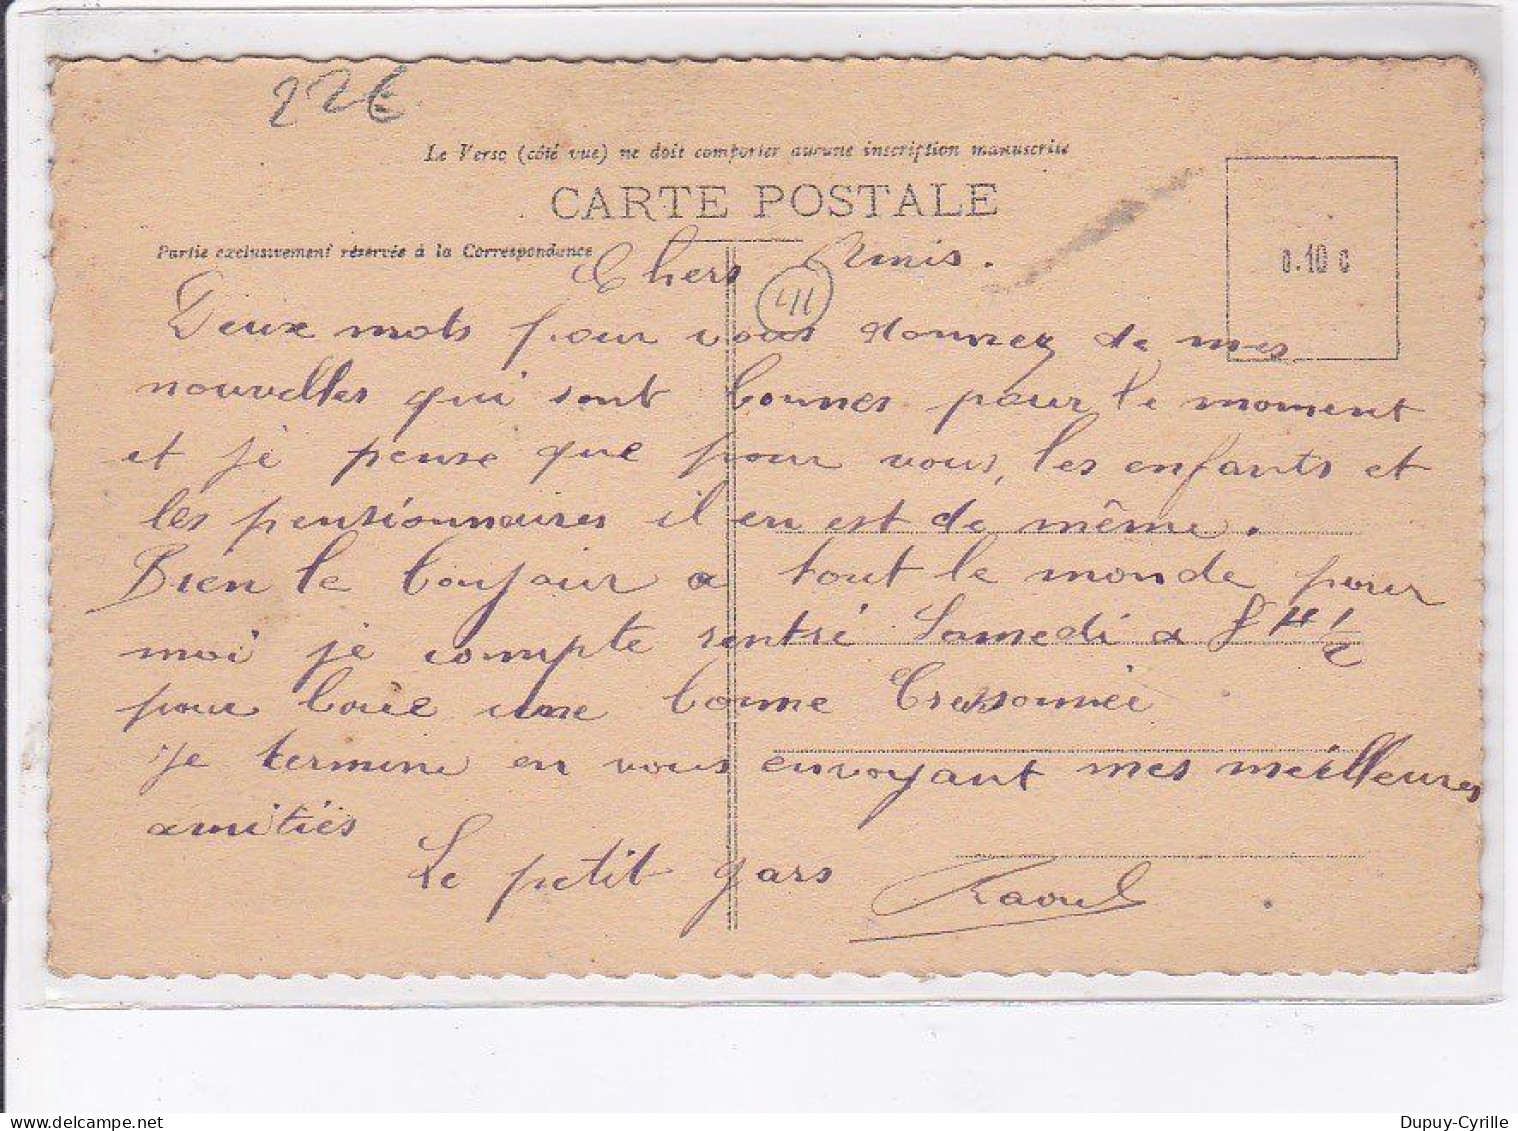 22€
Le Verso (côté vue) ne doit comporter aucune inscription manuscrite
CARTE POSTALE
Partie exclusivement réservée à la Correspondance
0.10 c
Chers Amis.
Deux mots pour vous donner de mes
nouvelles qui sont bonnes pour le moment
et je pense que pour vous, les enfants et
les pensionnaires il en est de même.
Bien le bonjour a tout le monde pour
moi je compte rentré Samedi a 8 H 1/2
pour boire une bonne
je termine en vous envoyant mes meilleures
amitiés
Le petit gars Raoul
Dupuy-Cyrille